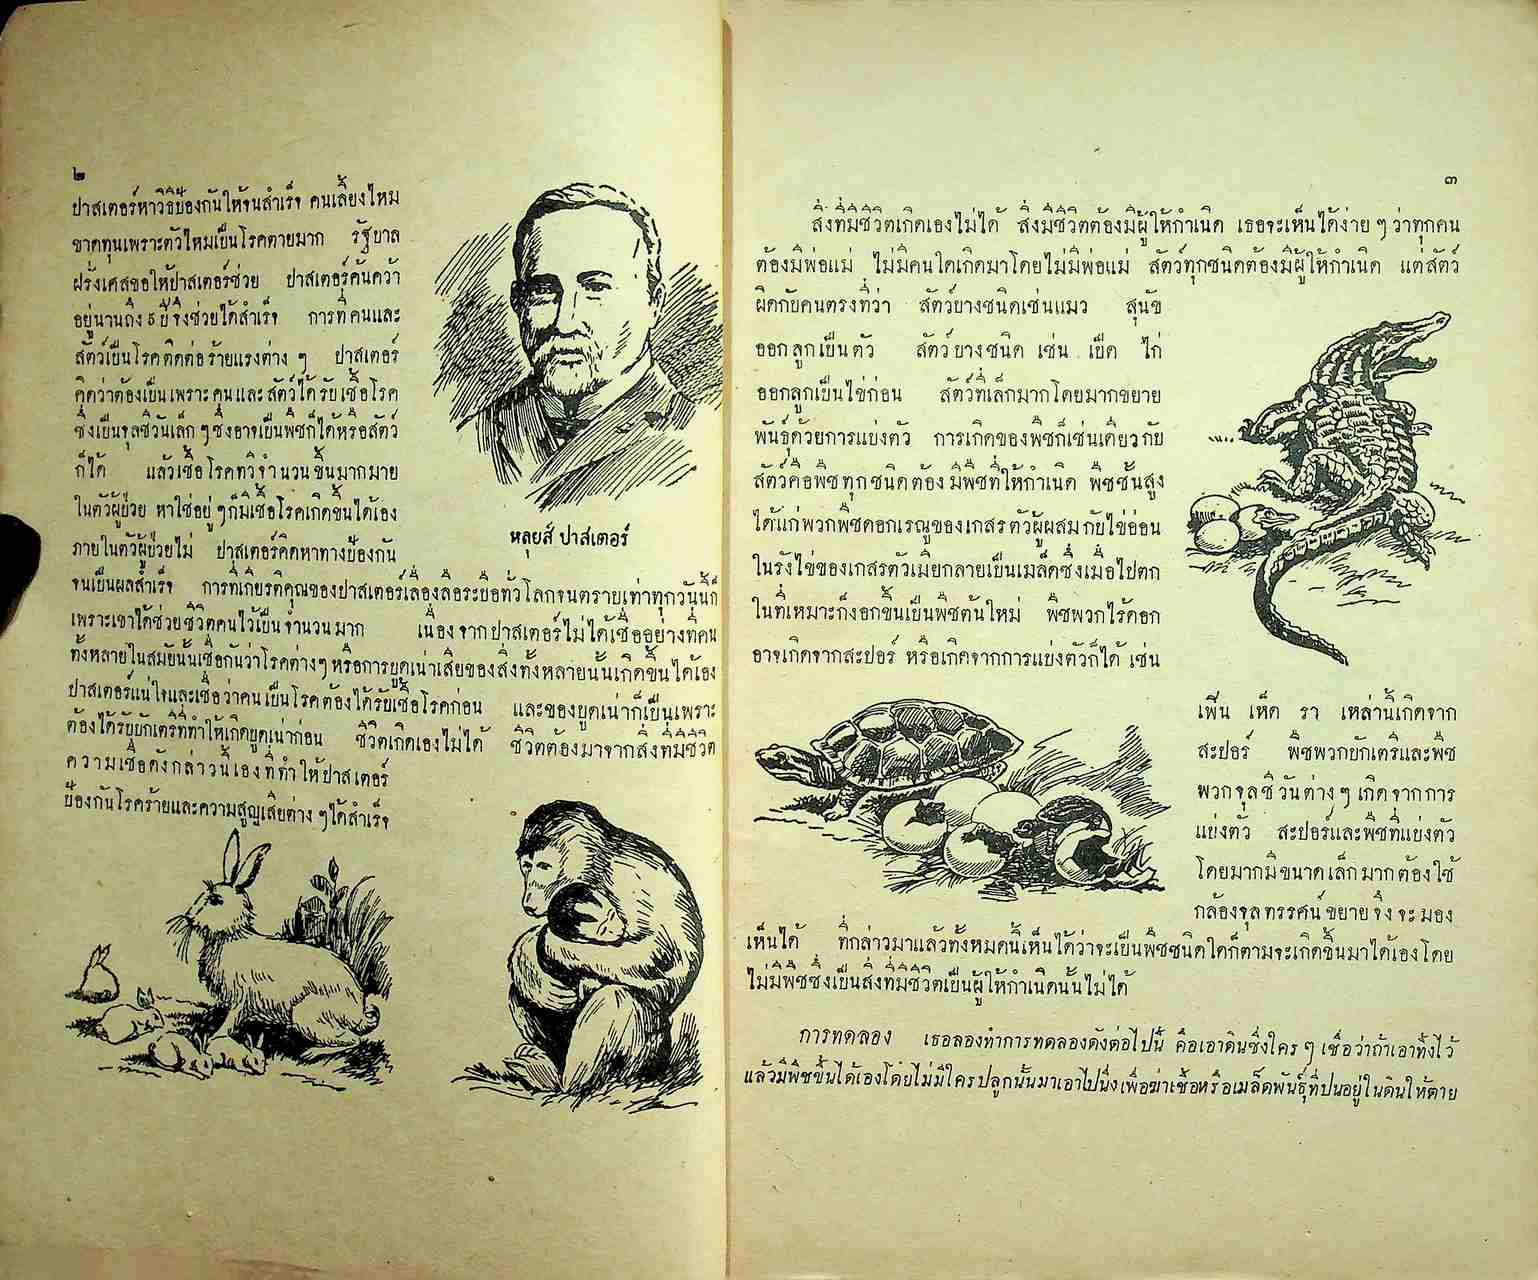 ๒
ปาสเตอร์หาวิธีป้องกันให้จนสำเร็จ คนเลี้ยงไหม
ขาดทุนเพราะตัวไหมเป็นโรคตายมาก รัฐบาล
ฝรั่งเศสขอให้ปาสเตอร์ช่วย ปาสเตอร์ค้นคว้า
อยู่นานถึง 5 ปี จึงช่วยได้สำเร็จ การที่คนและ
สัตว์เป็นโรคติดต่อร้ายแรงต่าง ๆ ปาสเตอร์
คิดว่าต้องเป็นเพราะคนและสัตว์ได้รับเชื้อโรค
ซึ่งเป็นจุลชีวันเล็ก ๆ ซึ่งอาจเป็นพืชก็ได้หรือสัตว์
ก็ได้ แล้วเชื้อโรคทวีจำนวนขึ้นมากมาย
ในตัวผู้ป่วย หาใช่อยู่ ๆ ก็มีเชื้อโรคเกิดขึ้นได้เอง
ภายในตัวผู้ป่วยไม่ ปาสเตอร์คิดหาทางป้องกัน
จนเป็นผลสำเร็จ การที่เกียรติคุณของปาสเตอร์เลื่องลือระบือทั่วโลกจนตราบเท่าทุกวันนี้ก็
เพราะเขาได้ช่วยชีวิตคนไว้เป็นจำนวนมาก เนื่องจากปาสเตอร์ไม่ได้เชื่ออย่างที่คน
ทั้งหลายในสมัยนั้นเชื่อกันว่าโรคต่างๆ หรือการบูดเน่าเสียของสิ่งทั้งหลายนั้นเกิดขึ้นได้เอง
ปาสเตอร์แน่ใจและเชื่อว่าคนเป็นโรคต้องได้รับเชื้อโรคก่อน และของบูดเน่าก็เป็นเพราะ
ต้องได้รับบักเตรีที่ทำให้เกิดบูดเน่าก่อน ชีวิตเกิดเองไม่ได้ ชีวิตต้องมาจากสิ่งที่มีชีวิต
ความเชื่อดังกล่าวนี้เองที่ทำให้ปาสเตอร์
ป้องกันโรคร้ายและความสูญเสียต่าง ๆ ได้สำเร็จ
หลุยส์ ปาสเตอร์
๓
สิ่งที่มีชีวิตเกิดเองไม่ได้ สิ่งมีชีวิตต้องมีผู้ให้กำเนิด เธอจะเห็นได้ง่าย ๆ ว่าทุกคน
ต้องมีพ่อแม่ ไม่มีคนใดเกิดมาโดยไม่มีพ่อแม่ สัตว์ทุกชนิดต้องมีผู้ให้กำเนิด แต่สัตว์
ผิดกับคนตรงที่ว่า สัตว์บางชนิดเช่นแมว สุนัข
ออกลูกเป็นตัว สัตว์บางชนิด เช่น เป็ด ไก่
ออกลูกเป็นไข่ก่อน สัตว์ที่เล็กมากโดยมากขยาย
พันธุ์ด้วยการแบ่งตัว การเกิดของพืชก็เช่นเดียวกับ
สัตว์คือพืชทุกชนิดต้องมีพืชที่ให้กำเนิด พืชชั้นสูง
ได้แก่พวกพืชดอกเรณูของเกสรตัวผู้ผสมกับไข่อ่อน
ในรังไข่ของเกสรตัวเมียกลายเป็นเมล็ดซึ่งเมื่อไปตก
ในที่เหมาะก็งอกขึ้นเป็นพืชต้นใหม่ พืชพวกไร้ดอก
อาจเกิดจากสะปอร์ หรือเกิดจากการแบ่งตัวก็ได้ เช่น
เฟิน เห็ด รา เหล่านี้เกิดจาก
สะปอร์ พืชพวกบักเตรีและพืช
พวกจุลชีวันต่าง ๆ เกิดจากการ
แบ่งตัว สะปอร์และพืชที่แบ่งตัว
โดยมากมีขนาดเล็กมากต้องใช้
กล้องจุลทรรศน์ขยายจึงจะมอง
เห็นได้ ที่กล่าวมาแล้วทั้งหมดนี้เห็นได้ว่าจะเป็นพืชชนิดใดก็ตามจะเกิดขึ้นมาได้เองโดย
ไม่มีพืชซึ่งเป็นสิ่งที่มีชีวิตเป็นผู้ให้กำเนิดนั้นไม่ได้
การทดลอง เธอลองทำการทดลองดังต่อไปนี้ คือเอาดินซึ่งใคร ๆ เชื่อว่าถ้าเอาทิ้งไว้
แล้วมีพืชขึ้นได้เองโดยไม่มีใครปลูกนั้นมาเอาไปนึ่งเพื่อฆ่าเชื้อหรือเมล็ดพันธุ์ที่ปนอยู่ในดินให้ตาย